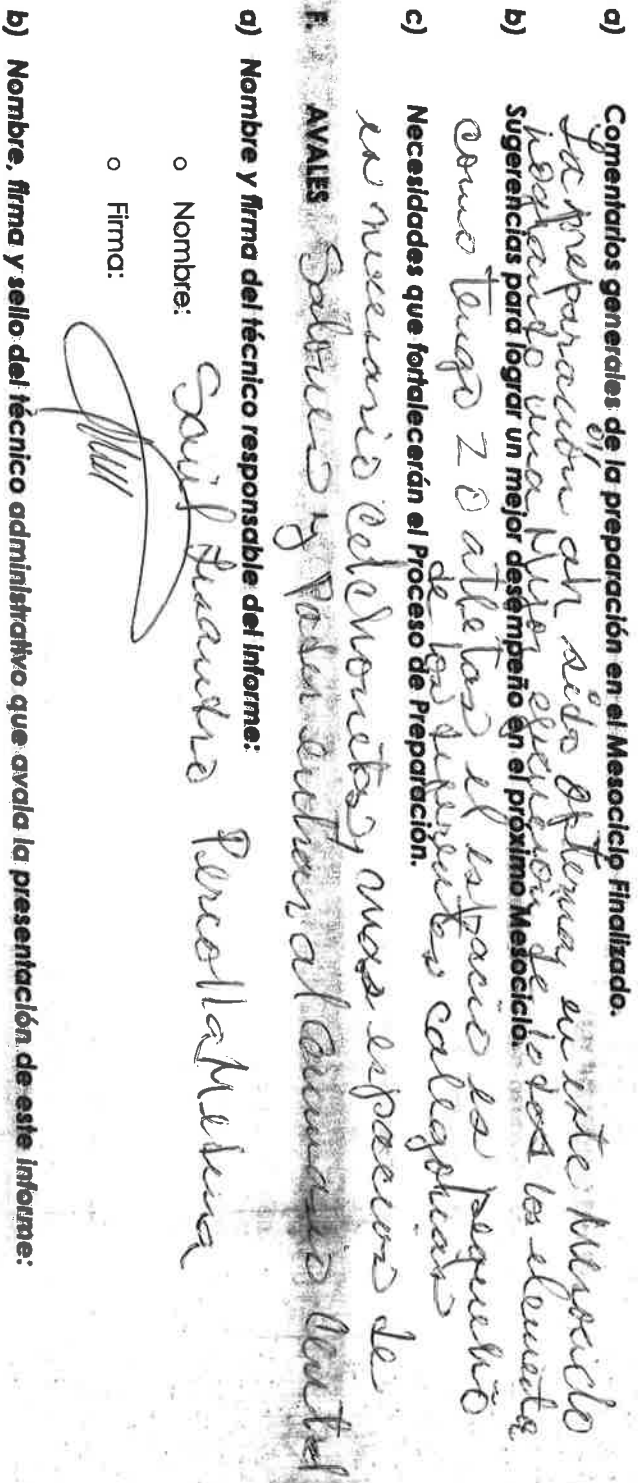 a) Comentarios generales de la preparación en el Mesociclo Finalizado.
La preparación ah sido optima y en este Mesociclo
logrando una Mejor ejecucion de todos los elementos
b) Sugerencias para lograr un mejor desempeño en el próximo Mesociclo.
como tengo 20 atletas el espacio es pequeño
de los diferentes categorias
c) Necesidades que fortalecerán el Proceso de Preparación.
es necesario Colchonetas y mas espacios de
F. AVALES Salones y Poder entrar al Gimnasio Central
a) Nombre y firma del técnico responsable del informe:
o Nombre: Saúl Lisandro Medina
o Firma:
b) Nombre, firma y sello del técnico administrativo que avala la presentación de este informe: